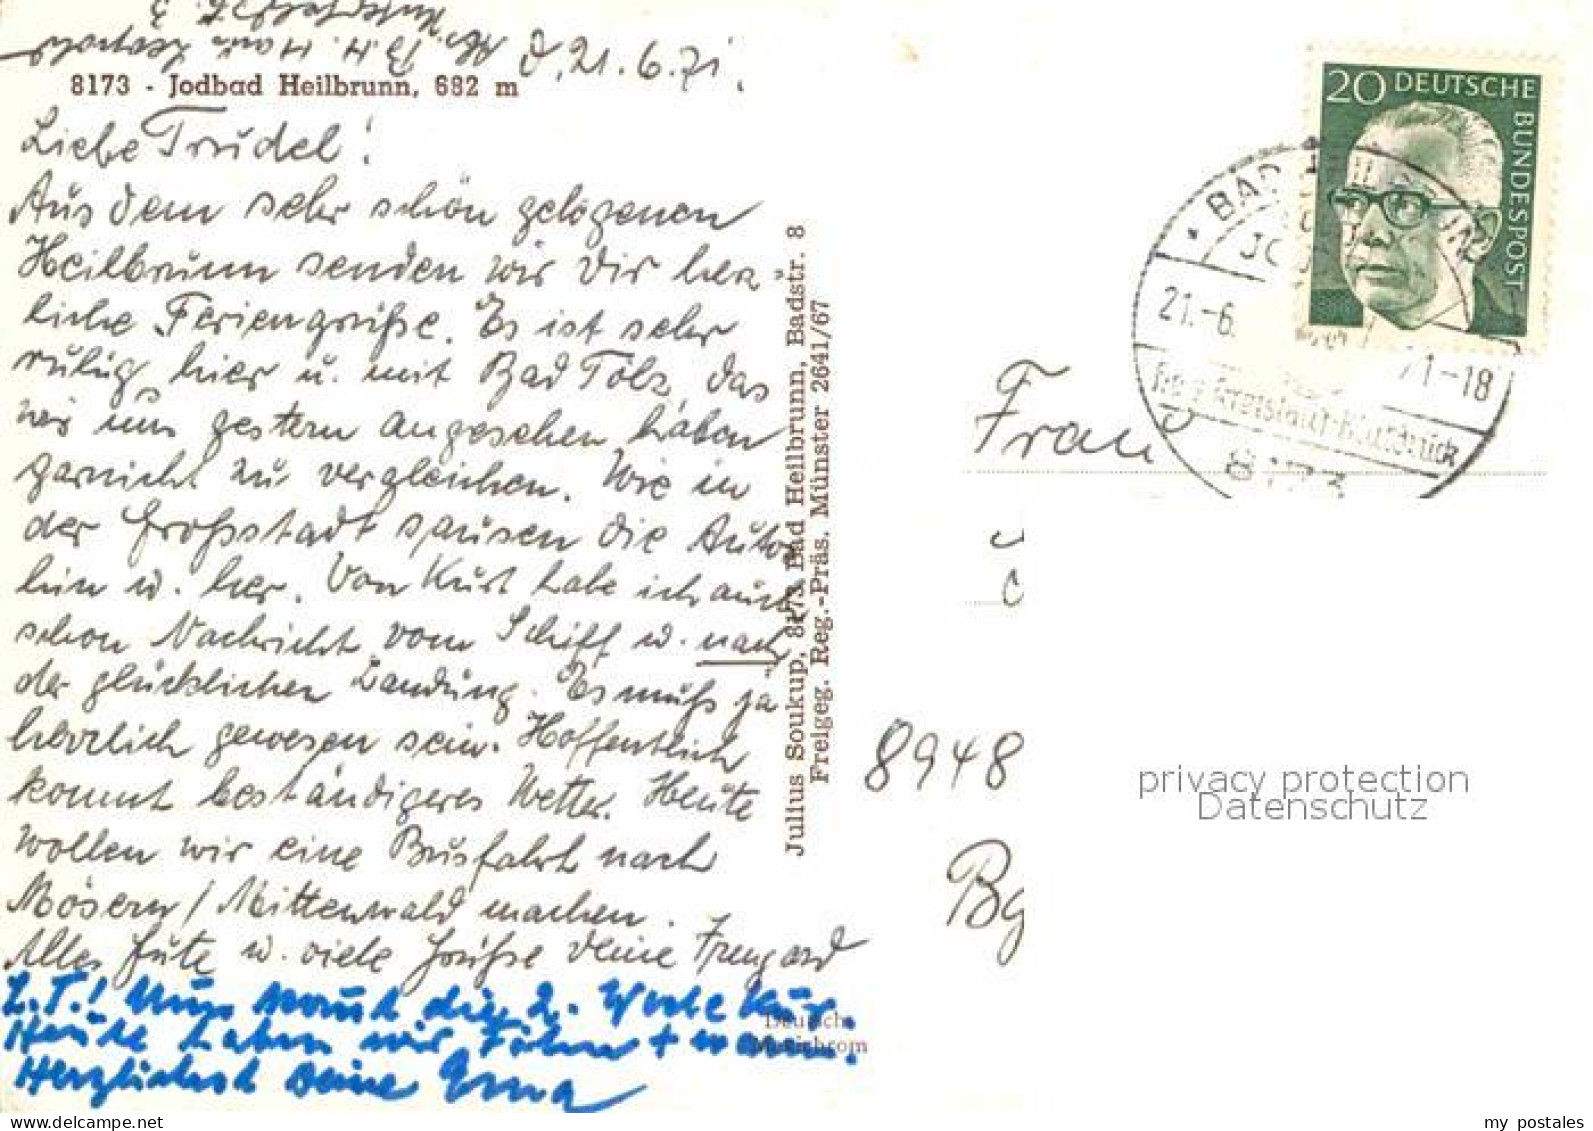 d. 21.6.71.
8173 - Jodbad Heilbrunn, 682 m
Liebe Trudel!
Aus dem sehr schön gelegenen
Heilbrunn senden wir Dir herz=
liche Feriengrüße. Es ist sehr
ruhig hier u. mit Bad Tölz, das
wir uns gestern angesehen haben
garnicht zu vergleichen. Wie in
der Großstadt sausen die Autos
hin u. her. Von Kurt habe ich auch
schon Nachricht vom Schiff u. nach
der glücklichen Landung. Es muß ja
herrlich gewesen sein. Hoffentlich
kommt beständigeres Wetter. Heute
wollen wir eine Busfahrt nach
Mösern / Mittenwald machen.
Alles Gute u. viele Grüße Deine Irmgard
L.T.! Nun kommt die 2. Woche Kur.
Heute haben wir Föhn + warm.
Herzlichst Deine Erna
Julius Soukup, 8173 Bad Heilbrunn, Badstr. 8
Freigeg. Reg.-Präs. Münster 2641/67
20 DEUTSCHE BUNDESPOST
BAD
21.-6.
71-18
8173
Frau
8948
privacy protection
Datenschutz
my postales
www.delcampe.net